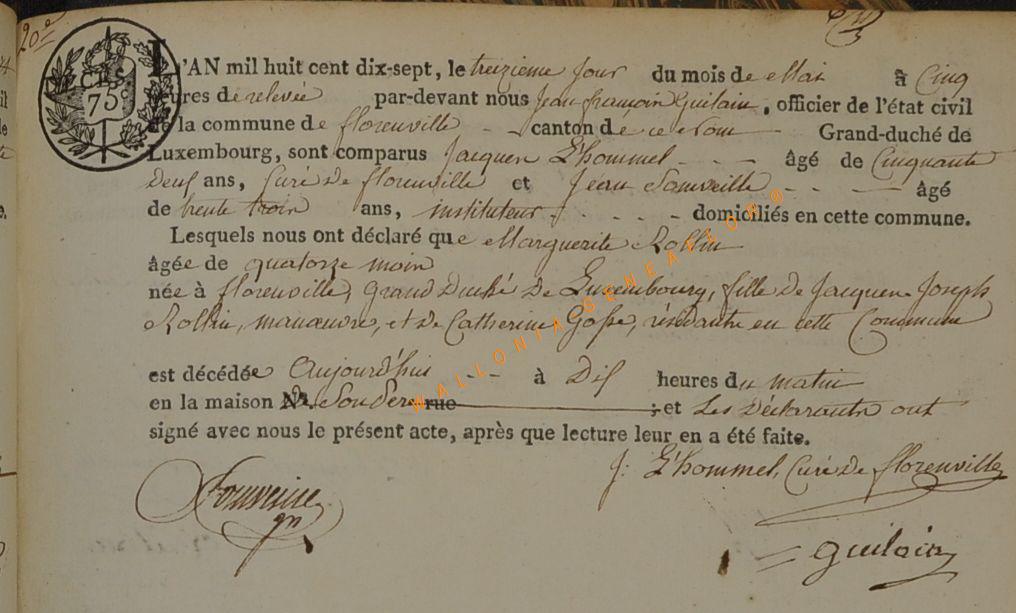 20e
CTS.
75
L'AN mil huit cent dix-sept, le treizieme jour du mois de Mai à Cinq
heures de relevée par-devant nous Jean françois Guilain, officier de l'état civil
de la commune de florenville - - canton de ce Nom Grand-duché de
Luxembourg, sont comparus Jacques L'hommel - - - âgé de Cinquante
Deux ans, Curé de florenville et Jean - - - âgé
de trente trois ans, instituteur - - - - domiciliés en cette commune.
Lesquels nous ont déclaré que Marguerite Rollin
âgée de quatorze mois
née à florenville, Grand Duché de Luxembourg, fille de Jacques Joseph
Rollin, manoeuvre, et de Catherine Gosse, résidante en cette Commune
est décédée Aujourd'hui - - à Dix heures du matin
en la maison N°. de Son Pere rue ; et Les Déclarants ont
signé avec nous le présent acte, après que lecture leur en a été faite.
J: L'hommel, Curé de florenville
guilain
WALLONIA GENEALOGO®